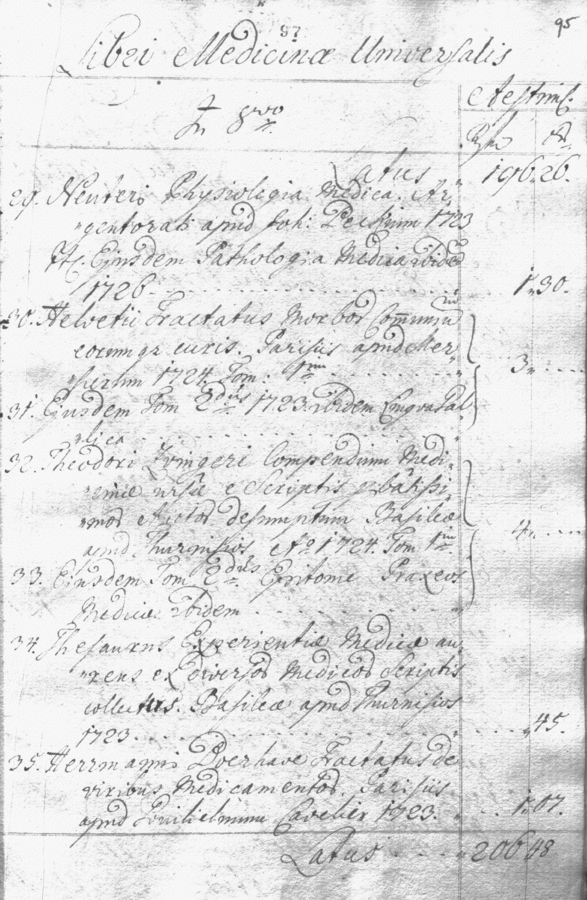 87
95
Libri Medicinæ Universalis
Aestimat:
In 8vo
Rfn Xr
Latus " 196. 26.
29. Neuteri Physiologia Medica. Ar,,
gentorati apud Joh: Beckium 1723
It. Ejusdem Pathologia Medica ibidē
1726 1" 30.
30. Helvetii Tractatus Morbor Com̄uniū
eorumqz curis. Parisiis apud Mer
1724. Tom: 1mus 3"
31. Ejusdem Tom 2dus 1723. ibidem Lingva Gal
lica
32. Theodori Zvingeri Compendium Medi,,
cinæ e Scriptis probatissi,,
mor Auctor desumptum Basileæ
apud Thurnisios Ao 1724. Tom 1mus 4"
33. Ejusdem Tom 2dus Epitome Praxeos
Medicæ ibidem
34. Thesaurus Experientiæ Medicæ au,,
reus ex diversor Medicor Scriptis
collectus. Basileæ apud Thurnisios
1723. " 45.
35. Herrmanni Boerhave Tractatus de
viribus Medicamentor. Parisiis
apud Guilielmum Cavelier 1723. 1" 07.
Latus " 206 48